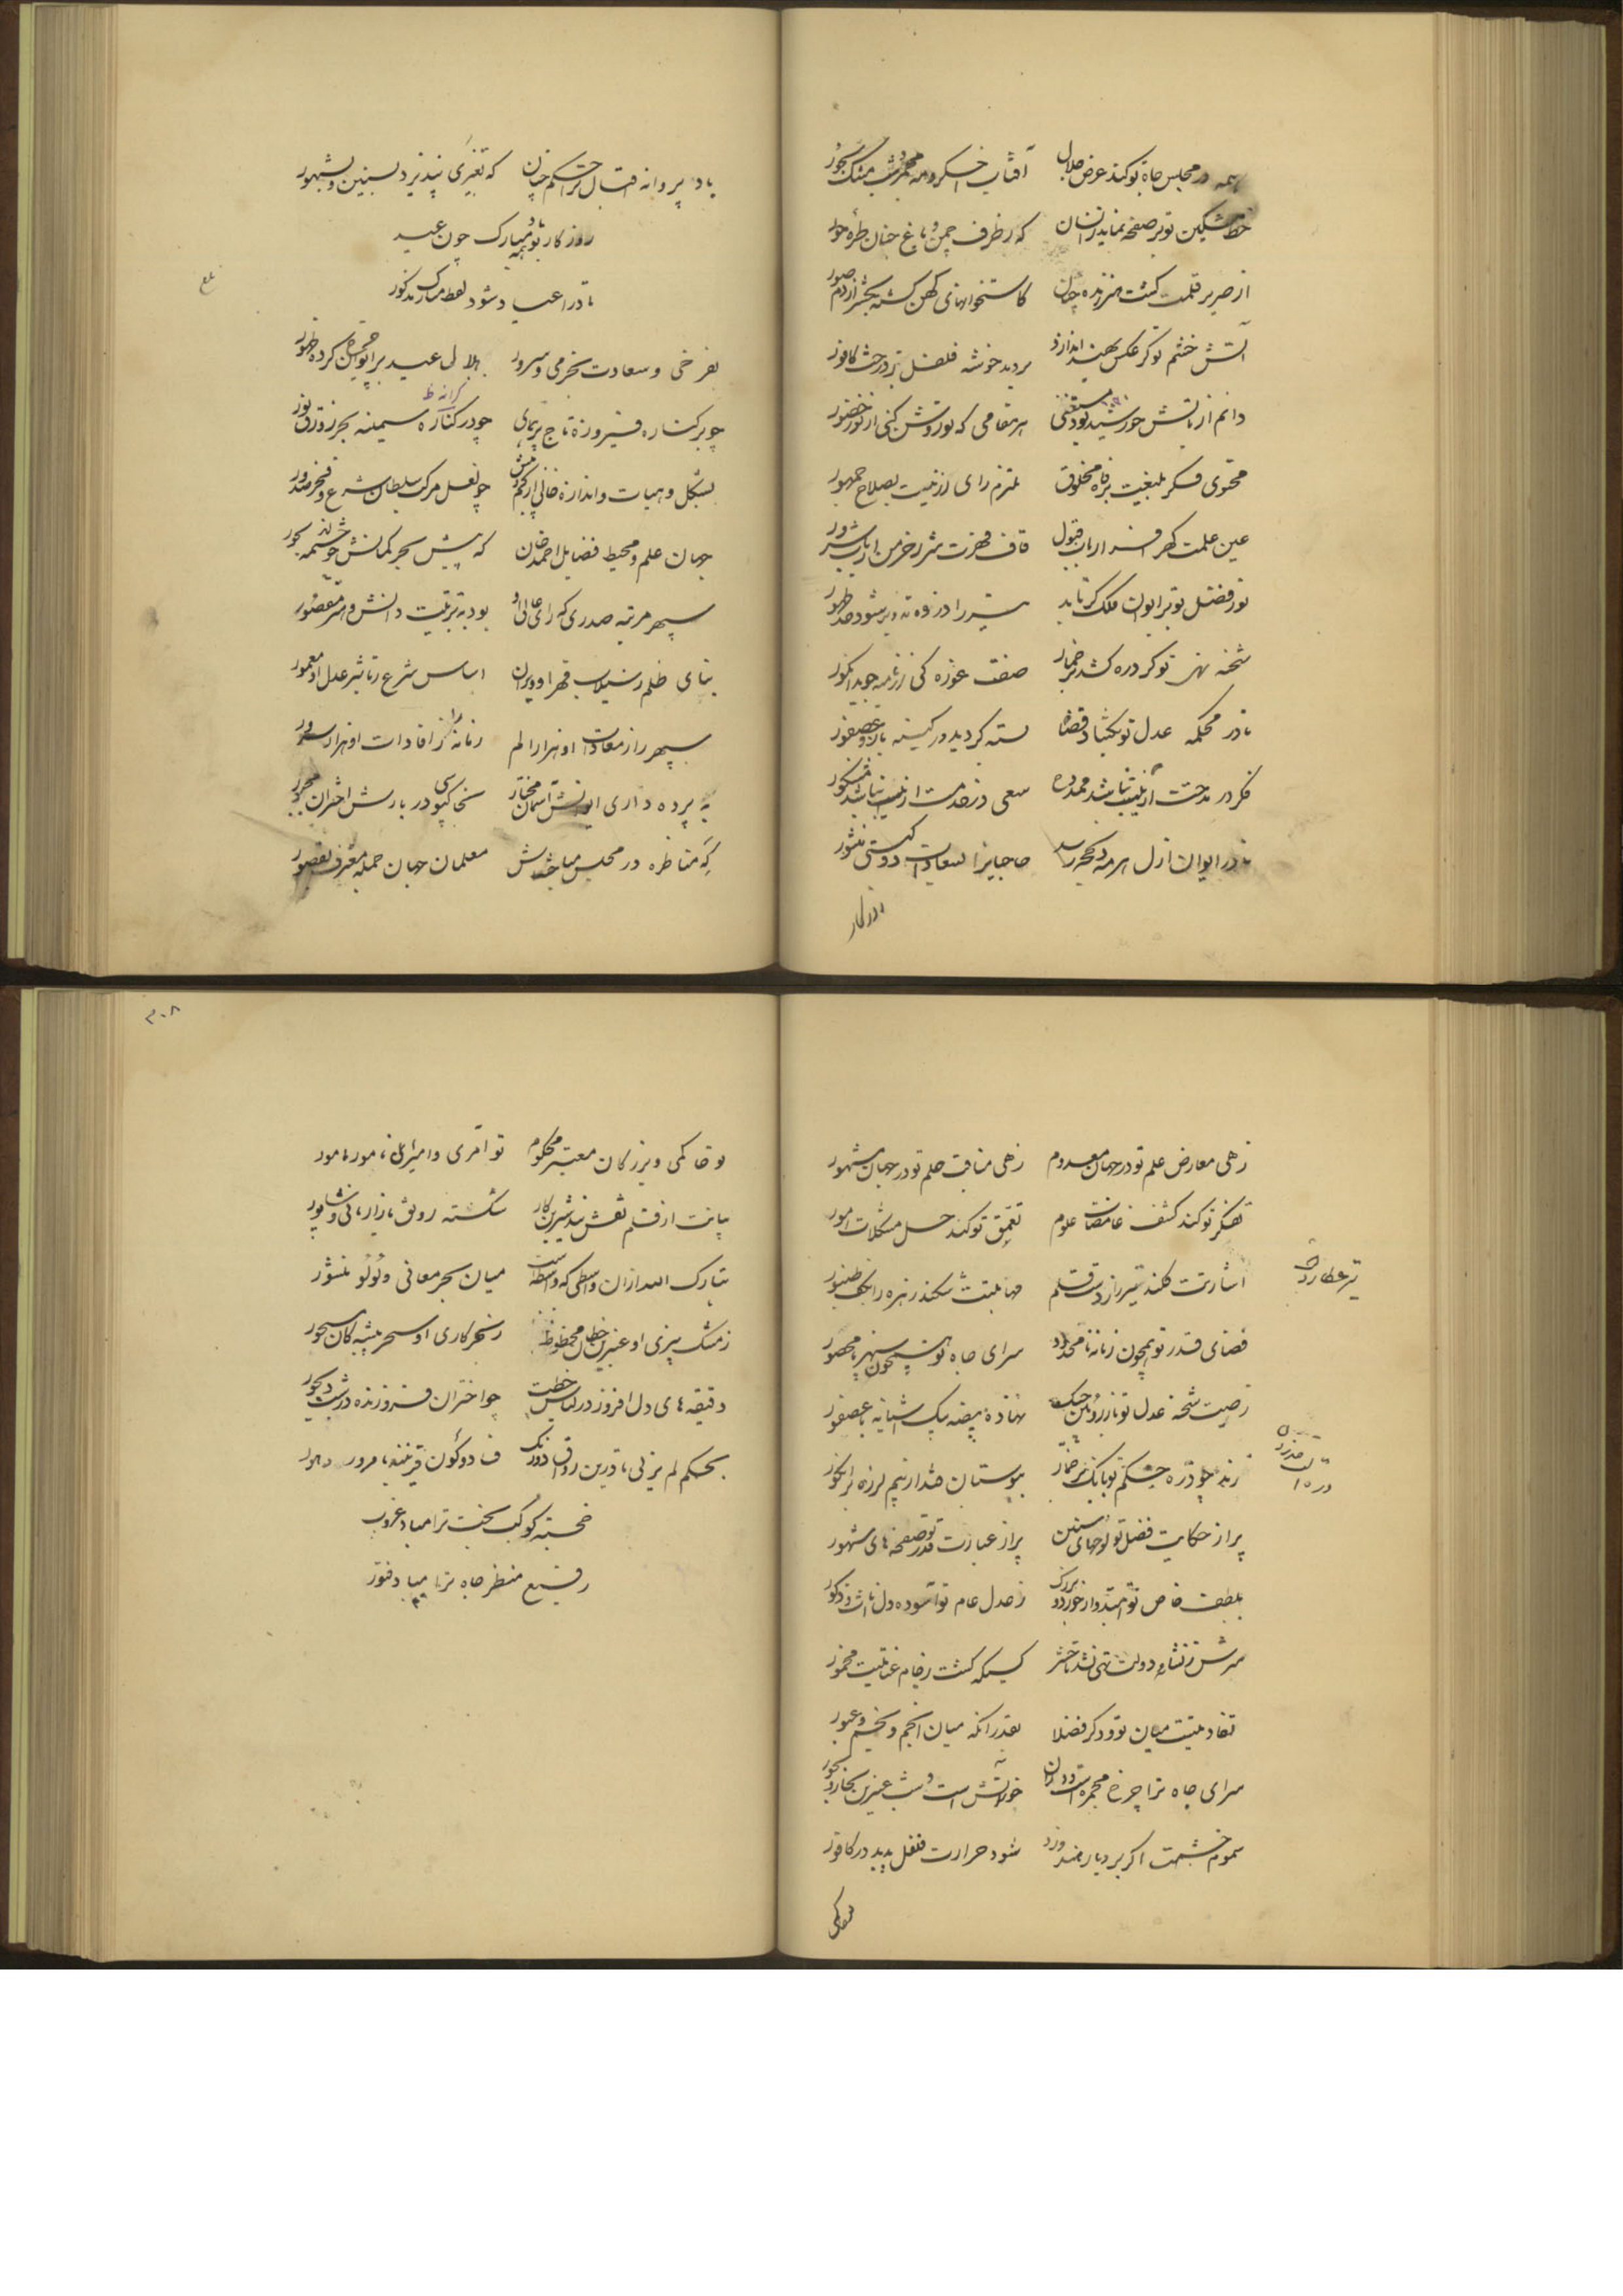 همه در مجلس جاه تو کند عرض جلال آفتاب اخگر و مه مجمر و شب مشک بخور
خط مشکین تو بر صفحه نماید زانسان که ز طرف چمن باغ جنان طره حور
از صریر قلمت گشت هنر زنده چنان کاستخوانهای کهن گشته بحشر از دم صور
آتش خشم تو گر عکس بهند اندازد بردید خوشه فلفل ز درخت کافور
دائم از تابش خورشید بود مستغنی هر مقامی که تو روشن کنی از نور حضور
محتوی فکر بلیغت برفاه مخلوق ملتزم رای رزینت بصلاح جمهور
عین علمت گهر افسر ارباب قبول قاف قهرت شرر خرمن ارباب شرور
نور فضل تو بر ایوان فلک گر تابد
شحنه نهی تو گر دره کشد بر خمار صفت غوره کی از تاک بجوید انگور
تا در محکمه عدل تو بگشاد قضا بسته گردید در کینه باز و عصفور
فکر در مدحت ارنیست نباشد ممدوح سعی در خدمت ارنیست نباشد مشکور
تا در ایوان ازل هر مه و هجر رسد حاجیان را بسعادات دوستی منشور
روزگار
باد پروانه اقبال ترا حکم چنان که تغیری نپذیرد بسنین و شهور
روزگار تو مبارک همه چون عید
تا در اعیاد شود لفظ مبارک مذکور
بلغ
بفرخی و سعادت بخرمی و سرور هلال عید بر ایوان چرخ کرده ظهور
چو بر کناره فیروزه تاج پرنمای چو در کناره سیمینه بحر زورق نور
کرانه ظ
بشکل و هیات و اندازه خالی از کم و بیش چو نعل مرکب سلطان شرع و فخر صدور
جهان علم و محیط فضایل احمد خان که پیش بحر کمالش چو چشمه بحور
سپهر مرتبه صدری که رای عالی او بود بتربیت دانش و هنر مقصور
بنای ظلم ز سیلاب قهر او ویران اساس شرع ز تاثیر عدل او معمور
سپهر را ز معادات او هزار الم زمانه را ز افادات او هزار سرور
به پرده داری ایوانش آسمان مختار بخاکپوسی دربارش اختران مجبور
گه مناظره در مجلس مباحثه‌اش معلمان جهان جمله معترف بقصور
زهی معارض علم تو در جهان معدوم زهی مناقب حلم تو در جهان مشهور
تفکر تو کند کشف غامضات علوم تعمق تو کند حل مشکلات امور
اشارتت فکند تیر را ز دست قلم مهابتت شکند زهره را بکف طنبور
تیر عطارد
فضای قدر تو همچون زمانه نامحدود سرای جاه تو همچون سپهر نامحصور
ز صیت شحنه عدل تو باز رویین چنگ نهاده بیضه بیک آشیانه با عصفور
زند چو دره حکم تو بانگ بر خمار ببوستان فتد از بیم لرزه بر انگور
پر از حکایت فضل تو لوحهای سنین پر از عبارت قدر تو صفحه‌های شهور
بلطف خاص تو امیدوار خورد و بزرگ ز عدل عام تو آسوده دل اناث و ذکور
سرش ز نشاه دولت تهی نشد تا حشر کسیکه گشت ز جام عنایتت مخمور
تفاوتیست میان تو و دگر فضلا بقدر آنکه میان انجم و
سرای جاه ترا چرخ مجمره است در آن خور آتش است و شب عنبرین بخار بخور
سموم خشمت اگر بر دیار هند وزد شود حرارت فلفل پدید در کافور
تو حاکمی
۳۰۸
تو حاکمی و بزرگان معتبر محکوم تو آمری و امیران نامور مامور
بیانت از قلم نقش بند شیرین کار شکسته رونق بازار مانی و شاپور
تبارک الله از ان واسطی که واسطه است میان بحر معانی و لولو منثور
ز مشک بیزی او عنبرین خطان محظوظ ز سحرکاری او سحر پیشه‌گان مسحور
دقیقه‌های دل افروز در لباس خطت چو اختران فروزنده در شب دیجور
بحکم لم یزلی تا درین رواق دو رنگ
خجسته کوکب بخت ترا مباد غروب
رفیع منظر جاه ترا مباد فتور